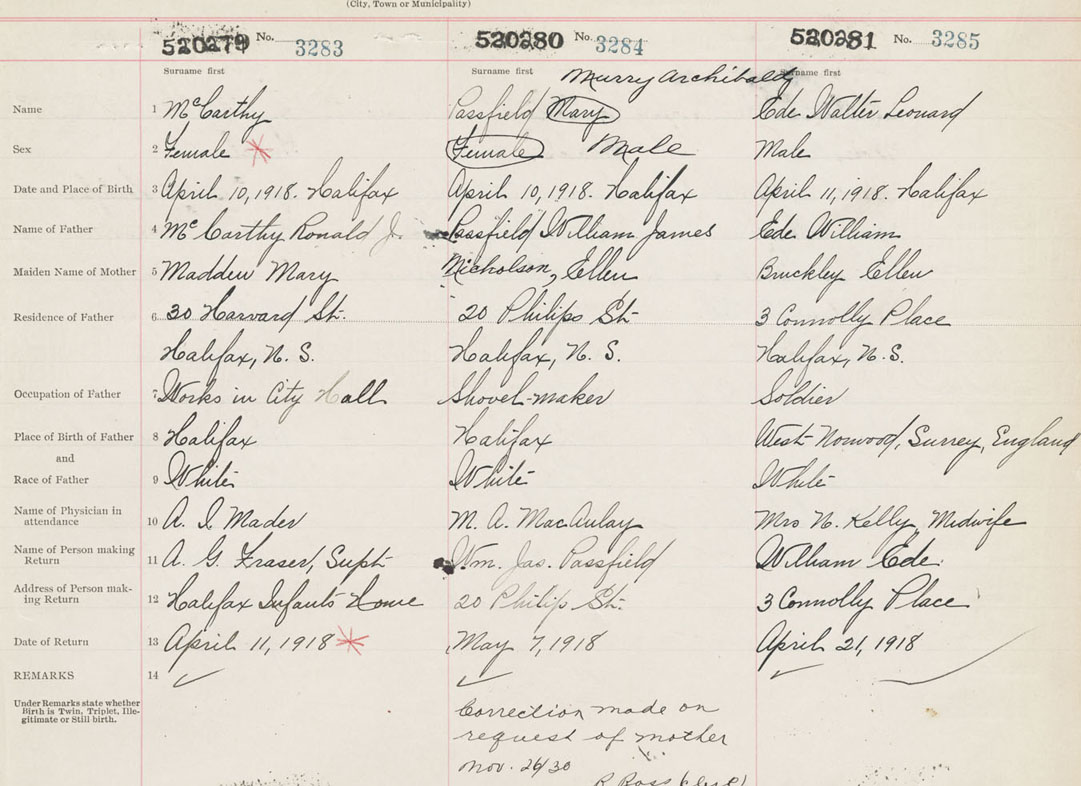 (City, Town or Municipality)
520279 No. 3283 520280 No. 3284 520281 No. 3285
Surname first Surname first Surname first
Murry Archibald
Name 1 McCarthy Passfield Mary Ede Walter Leonard
Sex 2 Female Female Male Male
Date and Place of Birth 3 April 10, 1918. Halifax April 10, 1918. Halifax April 11, 1918. Halifax
Name of Father 4 McCarthy Ronald J. Passfield William James Ede William
Maiden Name of Mother 5 Madden Mary Nicholson, Ellen Bruckley Ellen
Residence of Father 6 30 Harvard St. 20 Philips St. 3 Connolly Place
Halifax, N. S. Halifax, N. S. Halifax, N. S.
Occupation of Father 7 Works in City Hall Shovel-maker Soldier
Place of Birth of Father 8 Halifax Halifax West Norwood, Surrey, England
and
Race of Father 9 White White White
Name of Physician in
attendance 10 A. I. Mader M. A. MacAulay Mrs N. Kelly, Midwife
Name of Person making
Return 11 A. G. Fraser, Supt Wm. Jas. Passfield William Ede
Address of Person mak-
ing Return 12 Halifax Infants Home 20 Philip St. 3 Connolly Place
Date of Return 13 April 11, 1918 May 7, 1918 April 21, 1918
REMARKS 14
Under Remarks state whether
Birth is Twin, Triplet, Ille-
gitimate or Still birth.
Correction made on
request of mother
Nov. 26/30
R Ross